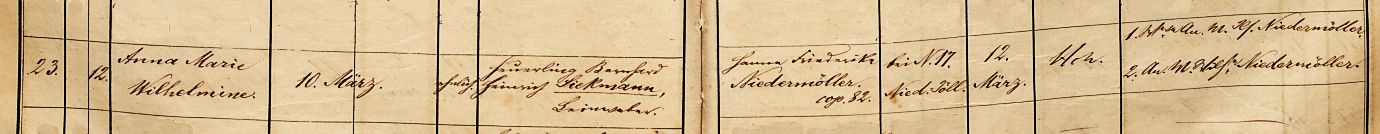 23.
12.
Anna Marie
Wilhelmine.
10. März.
ehelich.
Heuerling Bernhard
Heinrich Siekmann,
Leinweber.
Hanne Friederike
Niedermöller.
cop. 82.
bei N. 17.
Nied. Jöll.
12.
März.
1. An. M. Niedermöller.
2. An. M. Niedermöller.